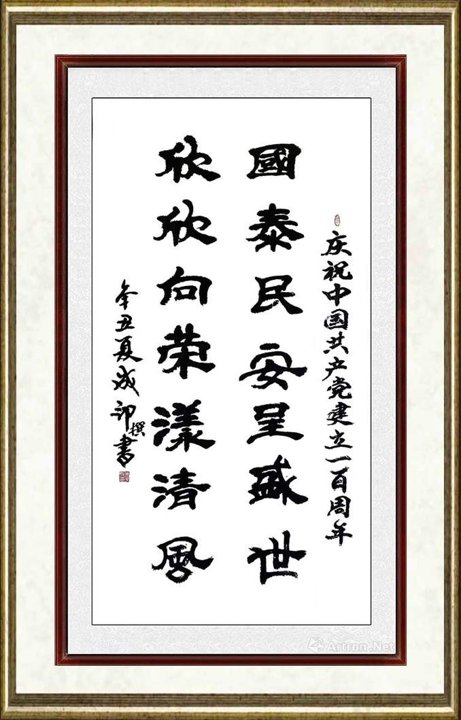 庆祝中国共产党建立一百周年
國泰民安呈盛世
欣欣向荣漾清风
辛丑夏成印撰书
Artron.Net